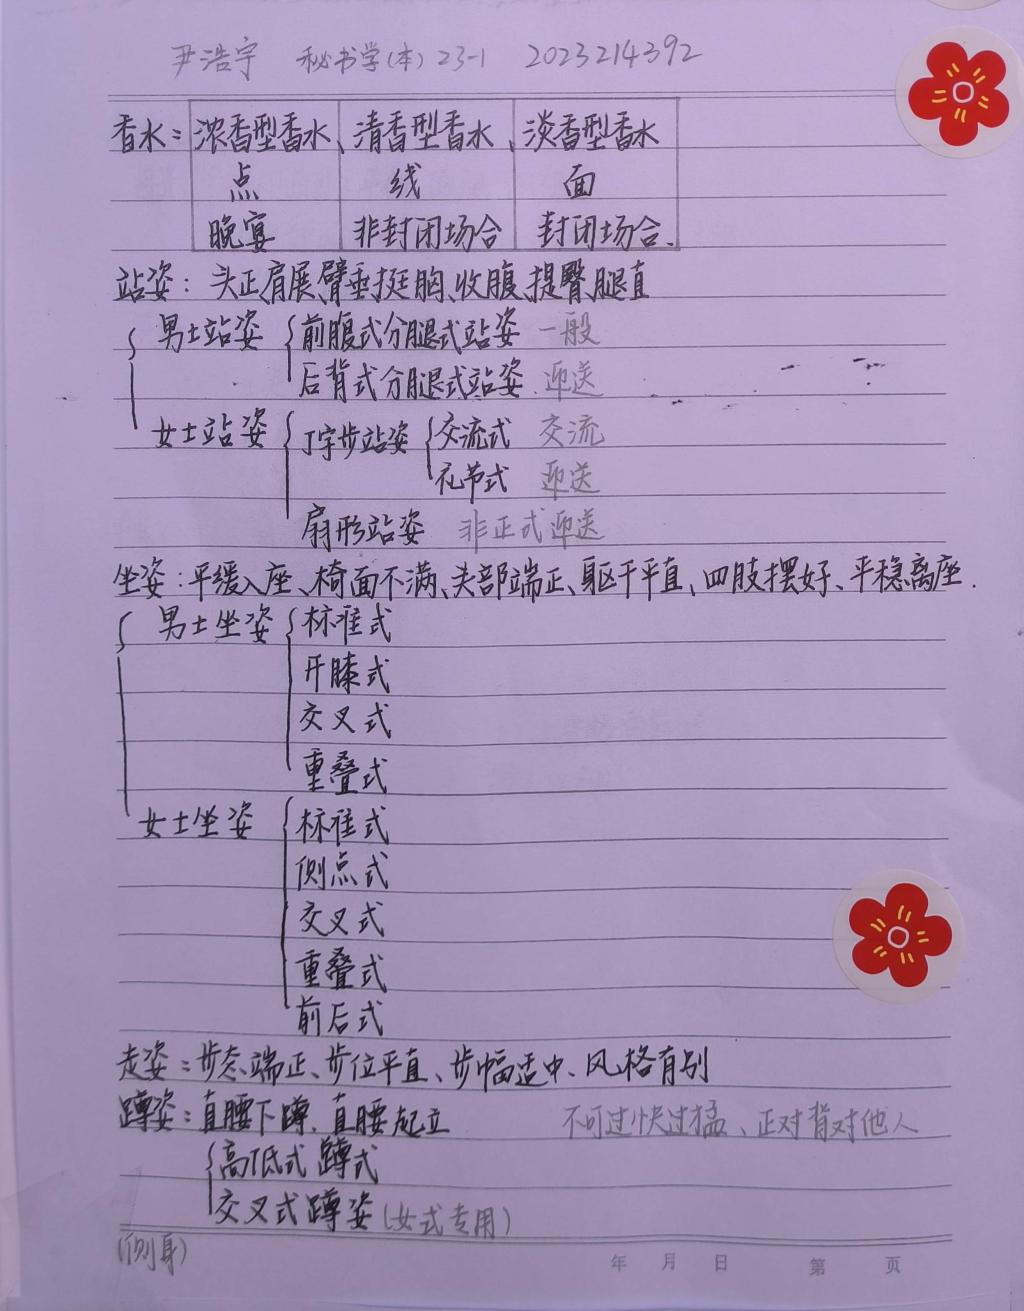 尹浩宇 秘书学(本)23-1 2023214392
香水: 浓香型香水、清香型香水、淡香型香水
点 线 面
晚宴 非封闭场合 封闭场合.
站姿: 头正、肩展、臂垂、挺胸、收腹、提臀、腿直
男士站姿 前腹式分腿式站姿 一般
后背式分腿式站姿 迎送
女士站姿 丁字步站姿 交流式 交流
礼节式 迎送
扇形站姿 非正式迎送
坐姿:平缓入座、椅面不满、头部端正、躯干平直、四肢摆好、平稳离座.
男士坐姿 标准式
开膝式
交叉式
重叠式
女士坐姿 标准式
侧点式
交叉式
重叠式
前后式
走姿:步态端正、步位平直、步幅适中、风格有别
蹲姿:直腰下蹲、直腰起立 不可过快过猛、正对背对他人
高低式蹲式
交叉式蹲姿(女式专用)
(侧身)
年 月 日 第 页